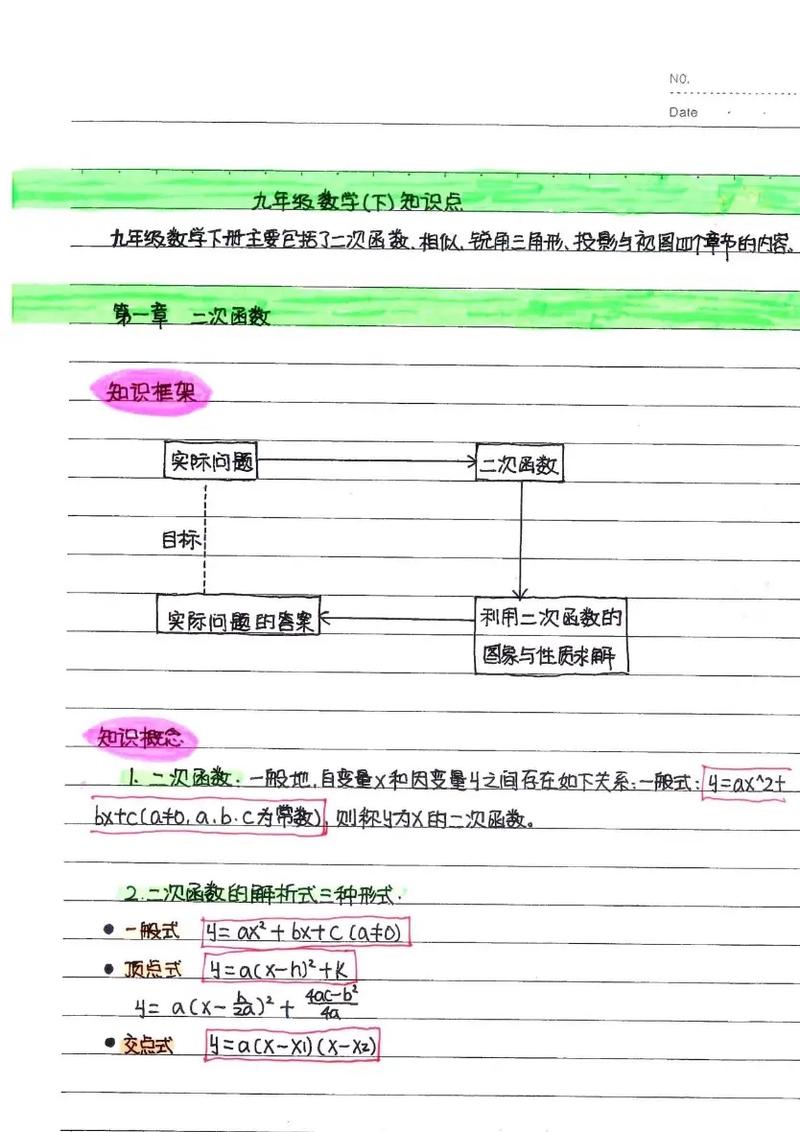 NO.
Date
九年级数学(下)知识点
九年级数学下册主要包括了二次函数、相似、锐角三角形、投影与视图四个章节的内容。
第一章 二次函数
知识框架
实际问题
二次函数
目标
实际问题的答案
利用二次函数的
图象与性质求解
知识概念
1. 二次函数:一般地,自变量x和因变量y之间存在如下关系:一般式:y=ax^2+
bx+c(a≠0,a、b、c为常数),则称y为x的二次函数。
2.二次函数的解析式三种形式.
● 一般式 y=ax²+bx+c(a≠0)
● 顶点式 y=a(x-h)²+k
y= a(x-b/2a)²+(4ac-b²)/4a
● 交点式 y=a(x-x1)(x-x2)